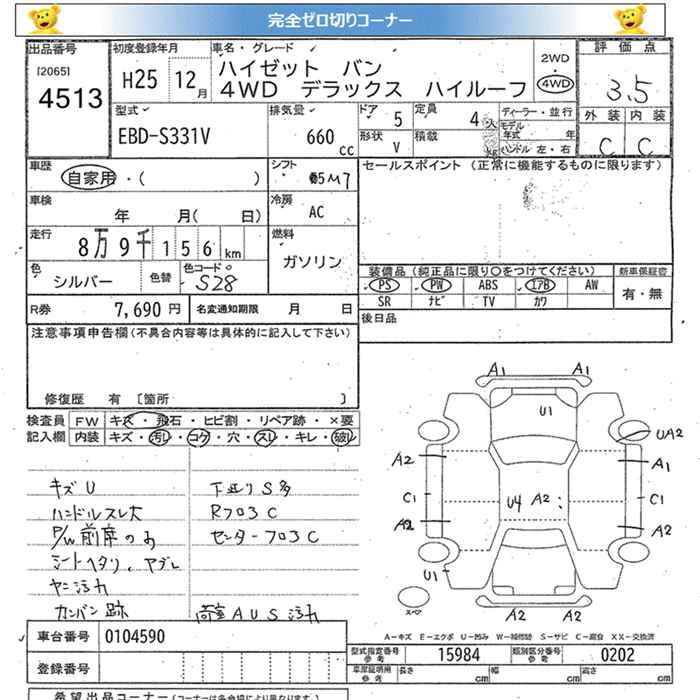 完全ゼロ切りコーナー
出品番号 初度登録年月 車名・グレード 評価点
[2065] 4513 H25 12月 ハイゼット バン 2WD
4WD デラックス ハイルーフ 4WD 3.5
型式 排気量 ドア 5 定員 4人 ディーラー・並行 外装 内装
EBD-S331V 660cc 形状 V 積載 kg モデル年式 年 C C
ハンドル 左・右
車歴 自家用・( ) シフト 5M7 セールスポイント (正常に機能するものに限ります)
車検 年 月( 日) 冷房 AC
走行 8万9千156km 燃料 ガソリン
色 シルバー 色替 色コード S28 装備品(純正品に限り○をつけてください) 新車保証書
PS PW ABS エアB AW 有・無
SR ナビ TV カワ
R券 7,690円 名変通知期限 月 日 後日品
注意事項申告欄(不具合内容等は具体的に記入して下さい)
修復歴 有 [箇所 ]
検査員 FW キズ・飛石・ヒビ割・リペア跡・×要
記入欄 内装 キズ・汚レ・コゲ・穴・スレ・キレ・破レ
A1 A1
U1
UA2
A2 A1
C1 U4 A2 C1
A2 A2
U1
スペア A2 A2
キズU 下廻りS多
ハンドルスレ大 RフロアC
P/W前席のみ センターフロアC
シートヘタリ、ヤブレ
ヤニ汚れ
カンバン跡 荷室AUS汚れ
A-キズ E-エクボ U-凹み W-補修跡 S-サビ C-腐食 XX-交換済
車台番号 0104590 型式指定番号 参考 15984 類別区分番号 参考 0202
登録番号 車庫証明用 参考 長さ cm 幅 cm 高さ cm
希望出品コーナー